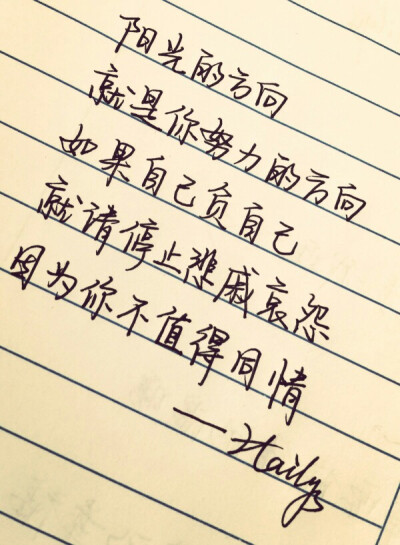 阳光的方向
就是你努力的方向
如果自己负自己
就请停止悲戚哀怨
因为你不值得同情
——Haily